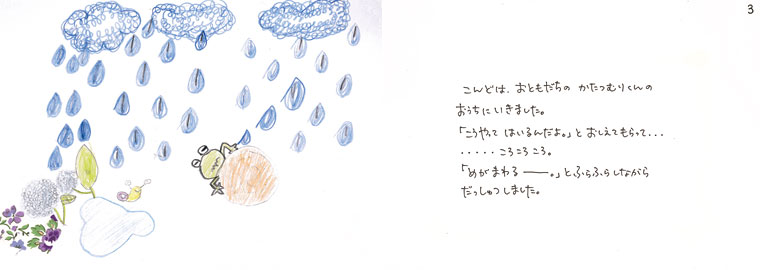 3
こんどは、おともだちの かたつむりくんの
おうちに いきました。
「こうやって はいるんだよ。」と おしえてもらって・・・
・・・・・ ころころころ。
「めがまわる ――。」と ふらふらしながら
だっしゅつしました。